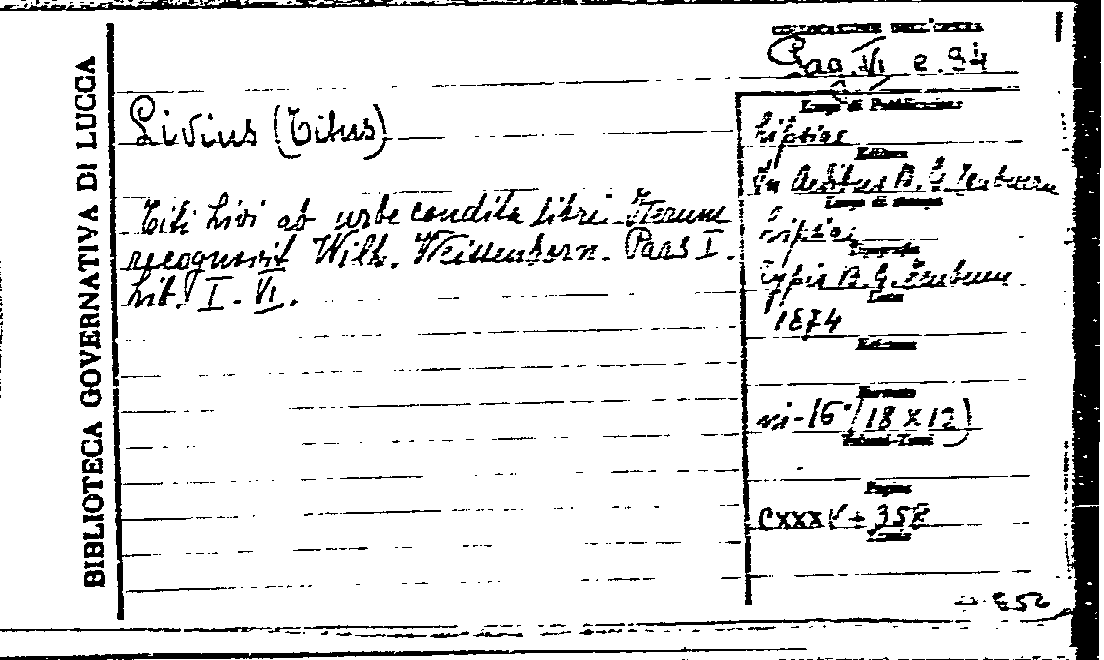 BIBLIOTECA GOVERNATIVA DI LUCCA
COLLOCAZIONE DELL'OPERA
VI e. 94
Livius (Titus)
Titi Livi ab urbe condita libri. Iterum
recognovit Wilh. Weissenborn. Pars I.
Lib. I - VI.
Luogo di Pubblicazione
Lipsiae
Editore
In Aedibus B. G. Teubneri
Luogo di stampa
Lipsiae
Tipografia
Typis B. G. Teubneri
Data
1874
Edizione
Formato
in-16° (18 x 12)
Volumi-Tomi
Pagine
CXXXV + 358